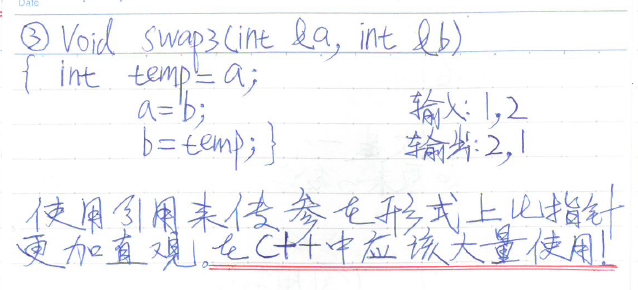 Date
③ Void swap3(int &a, int &b)
{ int temp = a;
a=b;
b=temp;}
输入:1,2
输出:2,1
使用引用来传参在形式上比指针
更加直观。在C++中应该大量使用!